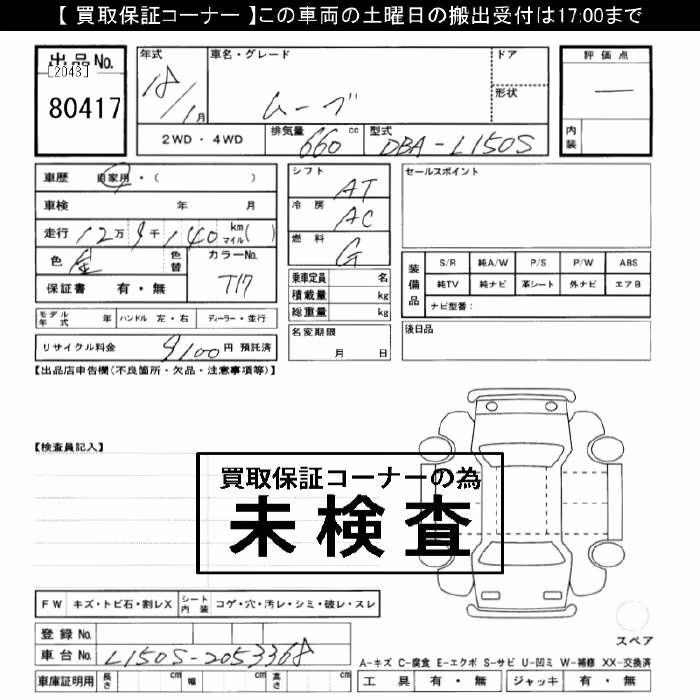 【 買取保証コーナー 】この車両の土曜日の搬出受付は17:00まで
出品No.
[2043]
80417
年式 18/1月
車名・グレード ムーブ
ドア
形状
評価点 ー
内装
2WD・4WD
排気量 660 cc
型式 DBA-L150S
車歴 自家用・( )
車検 年 月
走行 12万 9千 140 km マイル ( )
色 金 色替
カラーNo. T17
保証書 有・無
モデル年式 年 ハンドル 左・右 ディーラー・並行
リサイクル料金 9100円 預託済
シフト AT
冷房 AC
燃料 G
乗車定員 名
積載量 kg
総重量 kg
名変期限
月 日
セールスポイント
装備品
S/R 純A/W P/S P/W ABS
純TV 純ナビ 革シート 外ナビ エアB
ナビ型番：
後日品
【出品店申告欄(不良箇所・欠品・注意事項等)】
【検査員記入】
買取保証コーナーの為
未検査
FW キズ・トビ石・割レX シート内装 コゲ・穴・汚レ・シミ・破レ・スレ
登録No.
車台No. L150S-2053368
車庫証明用 長さ cm 幅 cm 高さ cm
スペア
A-キズ C-腐食 E-エクボ S-サビ U-凹ミ W-補修 XX-交換済
工具 有・無 ジャッキ 有・無